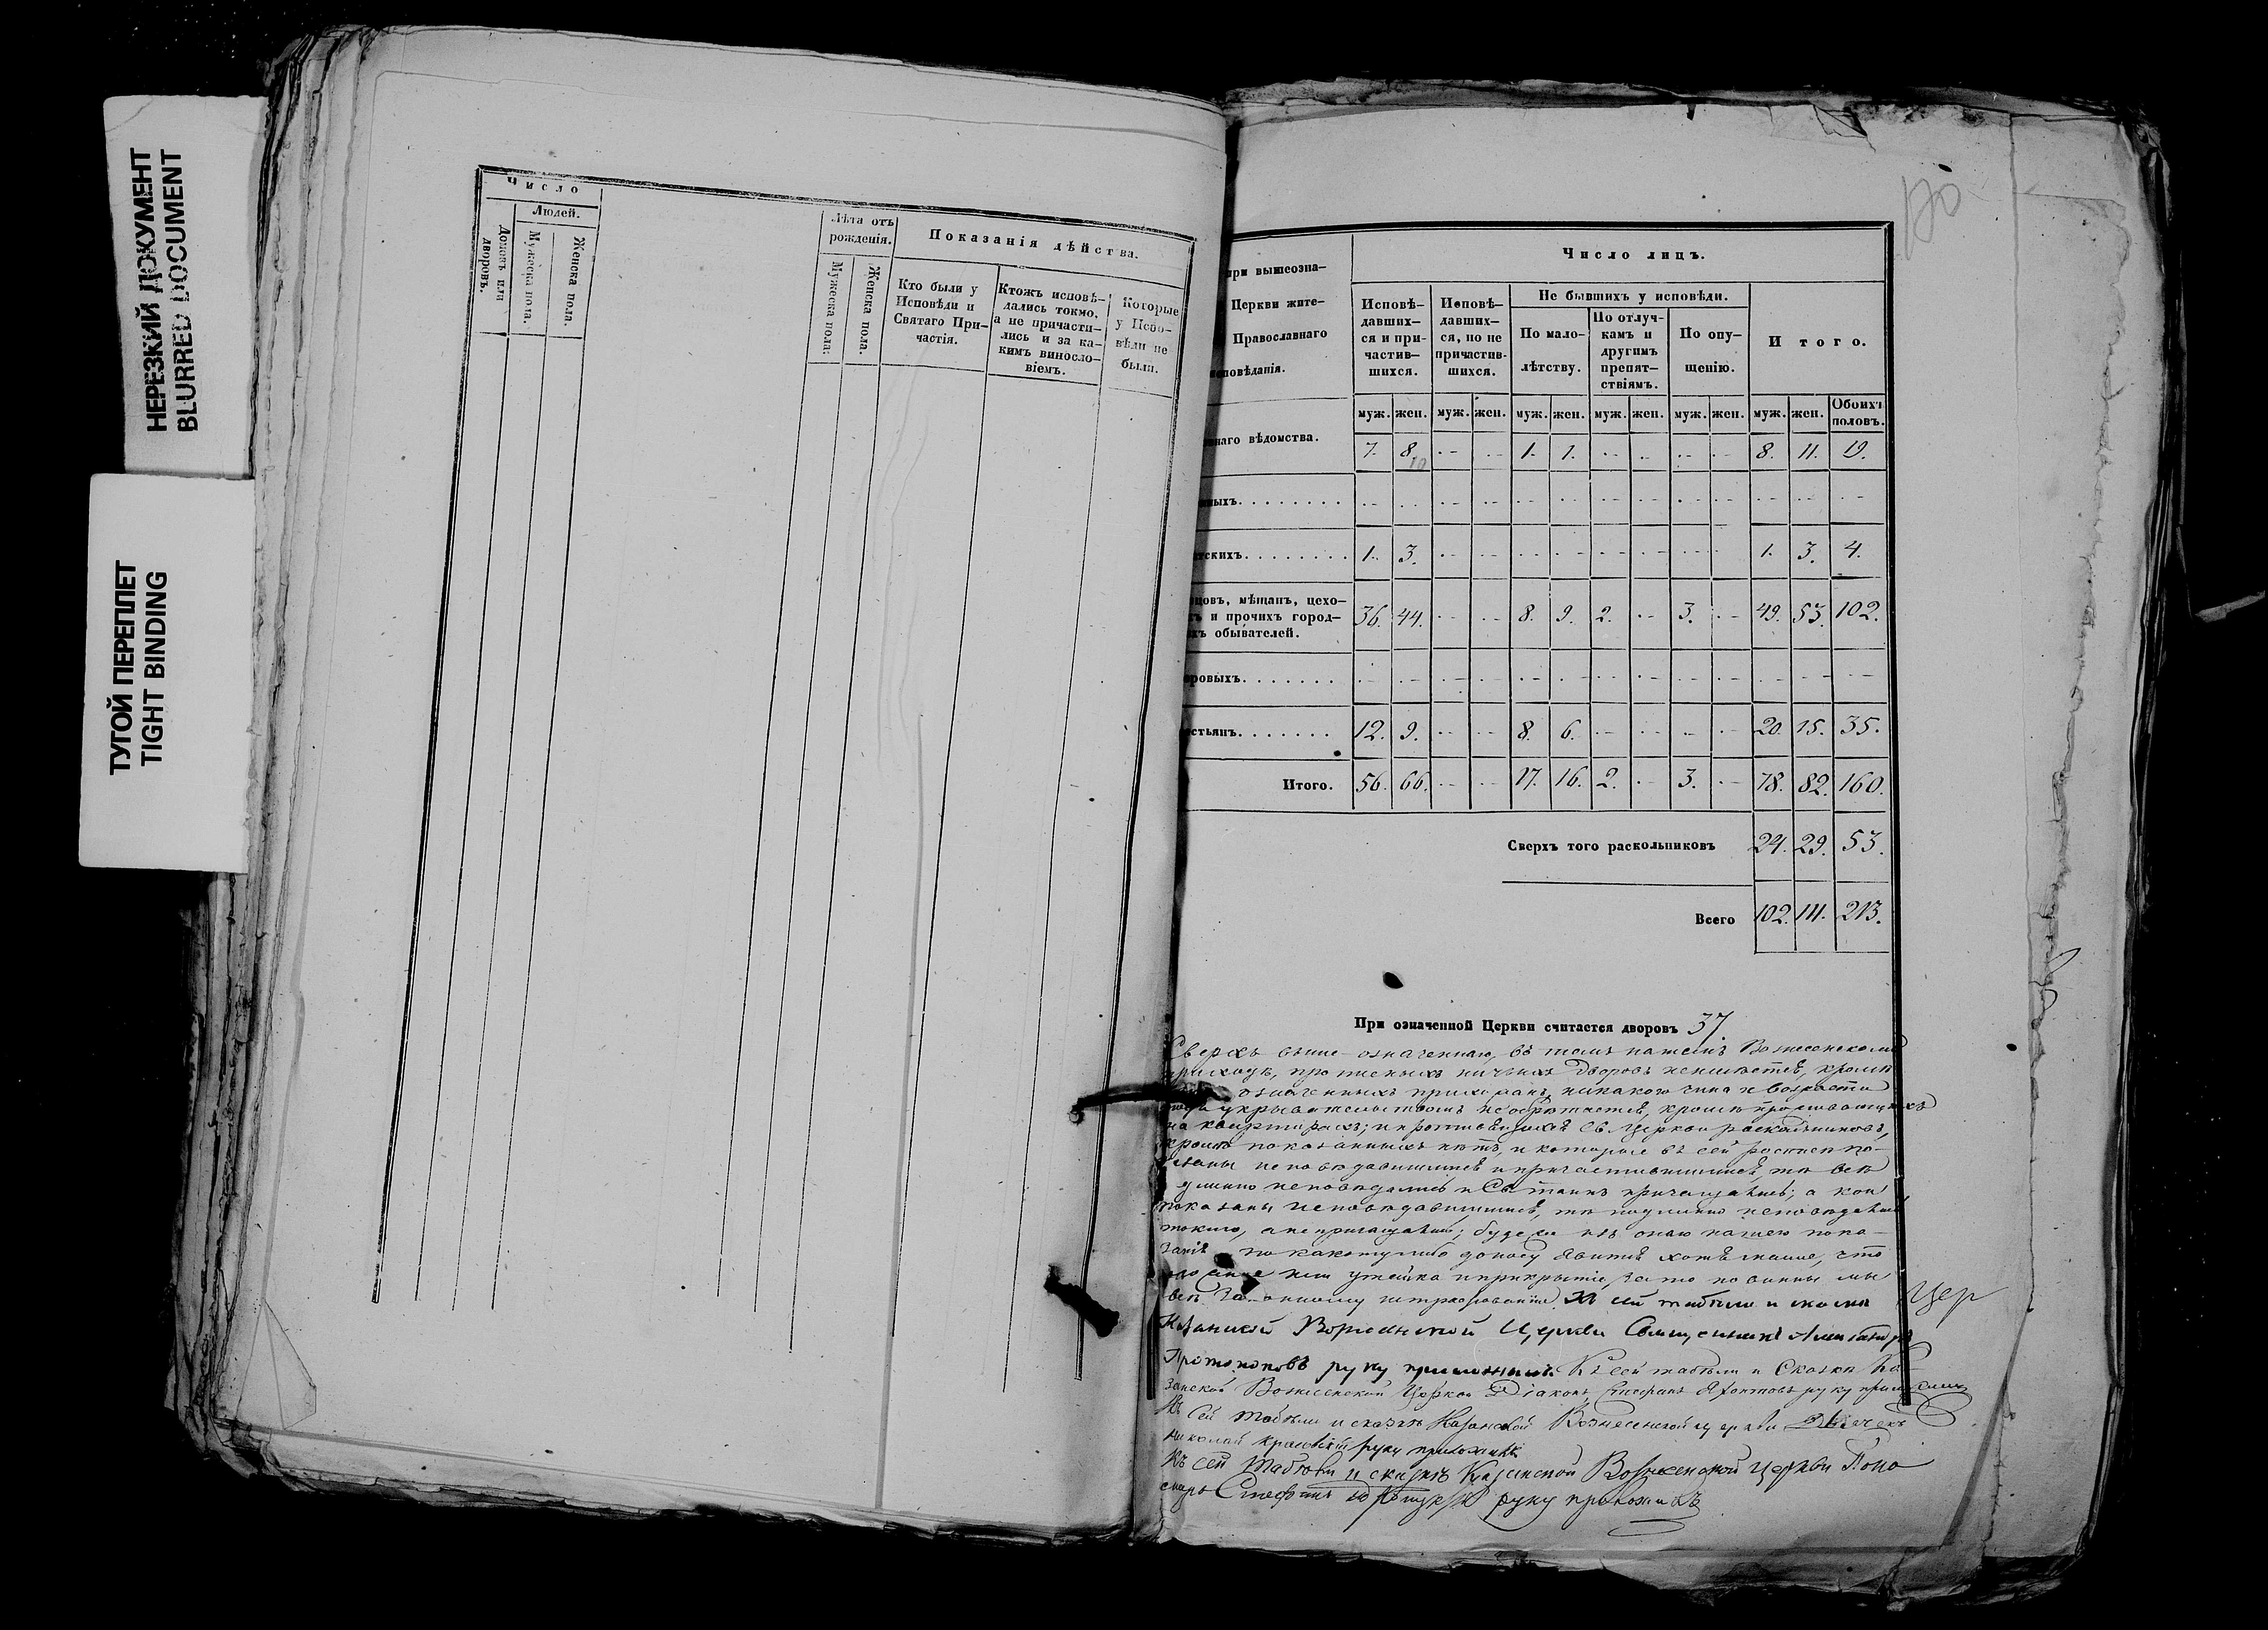 НЕРЕЗКИЙ ДОКУМЕНТ
BLURRED DOCUMENT
ТУГОЙ ПЕРЕПЛЕТ
TIGHT BINDING
Число
Людей.
Домовъ или дворовъ.
Мужеска пола.
Женска пола.
Лѣта отъ рожденія.
Мужеска пола.
Женска пола.
Показанія дѣйства.
Кто были у Исповѣди и Святаго Причастія.
Ктожъ исповѣдались токмо, а не причастились и за какимъ винословіемъ.
Которые у Исповѣди не были.
170
при вышеозна-
Церкви жите-
Православнаго
исповѣданія.
Число лицъ.
Исповѣ-давших-ся и при-частив-шихся.
Исповѣ-давших-ся, но не причастив-шихся.
Не бывшихъ у исповѣди.
По мало-лѣтству.
По отлуч-камъ и другимъ препят-ствіямъ.
По опу-щенію.
Итого.
муж. жен. муж. жен. муж. жен. муж. жен. муж. жен. муж. жен. Обоихъ половъ.
наго вѣдомства. 7. 8. 10 1. 1. 8. 11. 19.
ныхъ.
тскихъ. 1. 3. 1. 3. 4.
цовъ, мѣщанъ, цехо-
ъ и прочихъ город-
хъ обывателей. 36. 44. 8. 9. 2. 3. 49. 53. 102.
ровыхъ.
стьянъ. 12. 9. 8. 6. 20. 15. 35.
Итого. 56. 66. 17. 16. 2. 3. 78. 82. 160.
Сверхъ того раскольниковъ 24. 29. 53.
Всего 102. 111. 213.
При означенной Церкви считается дворовъ 37.
Сверхъ выше-означеннаго, въ томъ нашемъ Вознесенскомъ
приходѣ, дворовъ неимѣется, кромѣ
означенныхъ прихожанъ, никакого чина и возраста
укрывательствомъ кромѣ проживающихъ
на квартирахъ; и Св. Церкви раскольниковъ,
кромѣ показанныхъ нѣтъ, и которые въ сей росписи по-
казаны исповѣдавшимися и причастившимися, тѣ всѣ
исповѣдались и Св. таинъ причащались; а кои
показаны исповѣдавшимися, тѣ подлинно исповѣдались
токмо, а не причащались; буде на
по какому либо доносу явится хотя малое, что
или утайка и прикрытіе, за то повинны мы
всѣ Законному штрафованію. Къ сей табели и сказкѣ
Казанской Вознесенской Церкви Священникъ
Протопоповъ руку приложилъ. Къ сей табели и Сказкѣ Ка-
занской Вознесенской Церкви Діаконъ Стефанъ руку приложилъ
Къ сей табели и сказкѣ Казанской Вознесенской церкви Дьячекъ
Николай руку приложилъ
Къ сей табели и сказкѣ Казанской Вознесенской церкви Поно
марь Стефанъ руку приложилъ